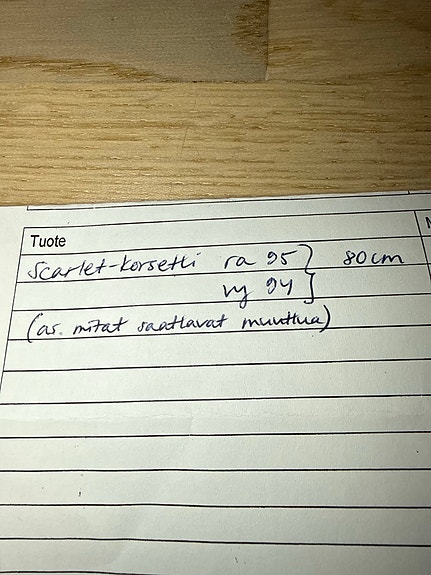 Tuote
Scarlet-korsetti ra 95 } 80cm
vy 94
(as. mitat saattavat muuttua)